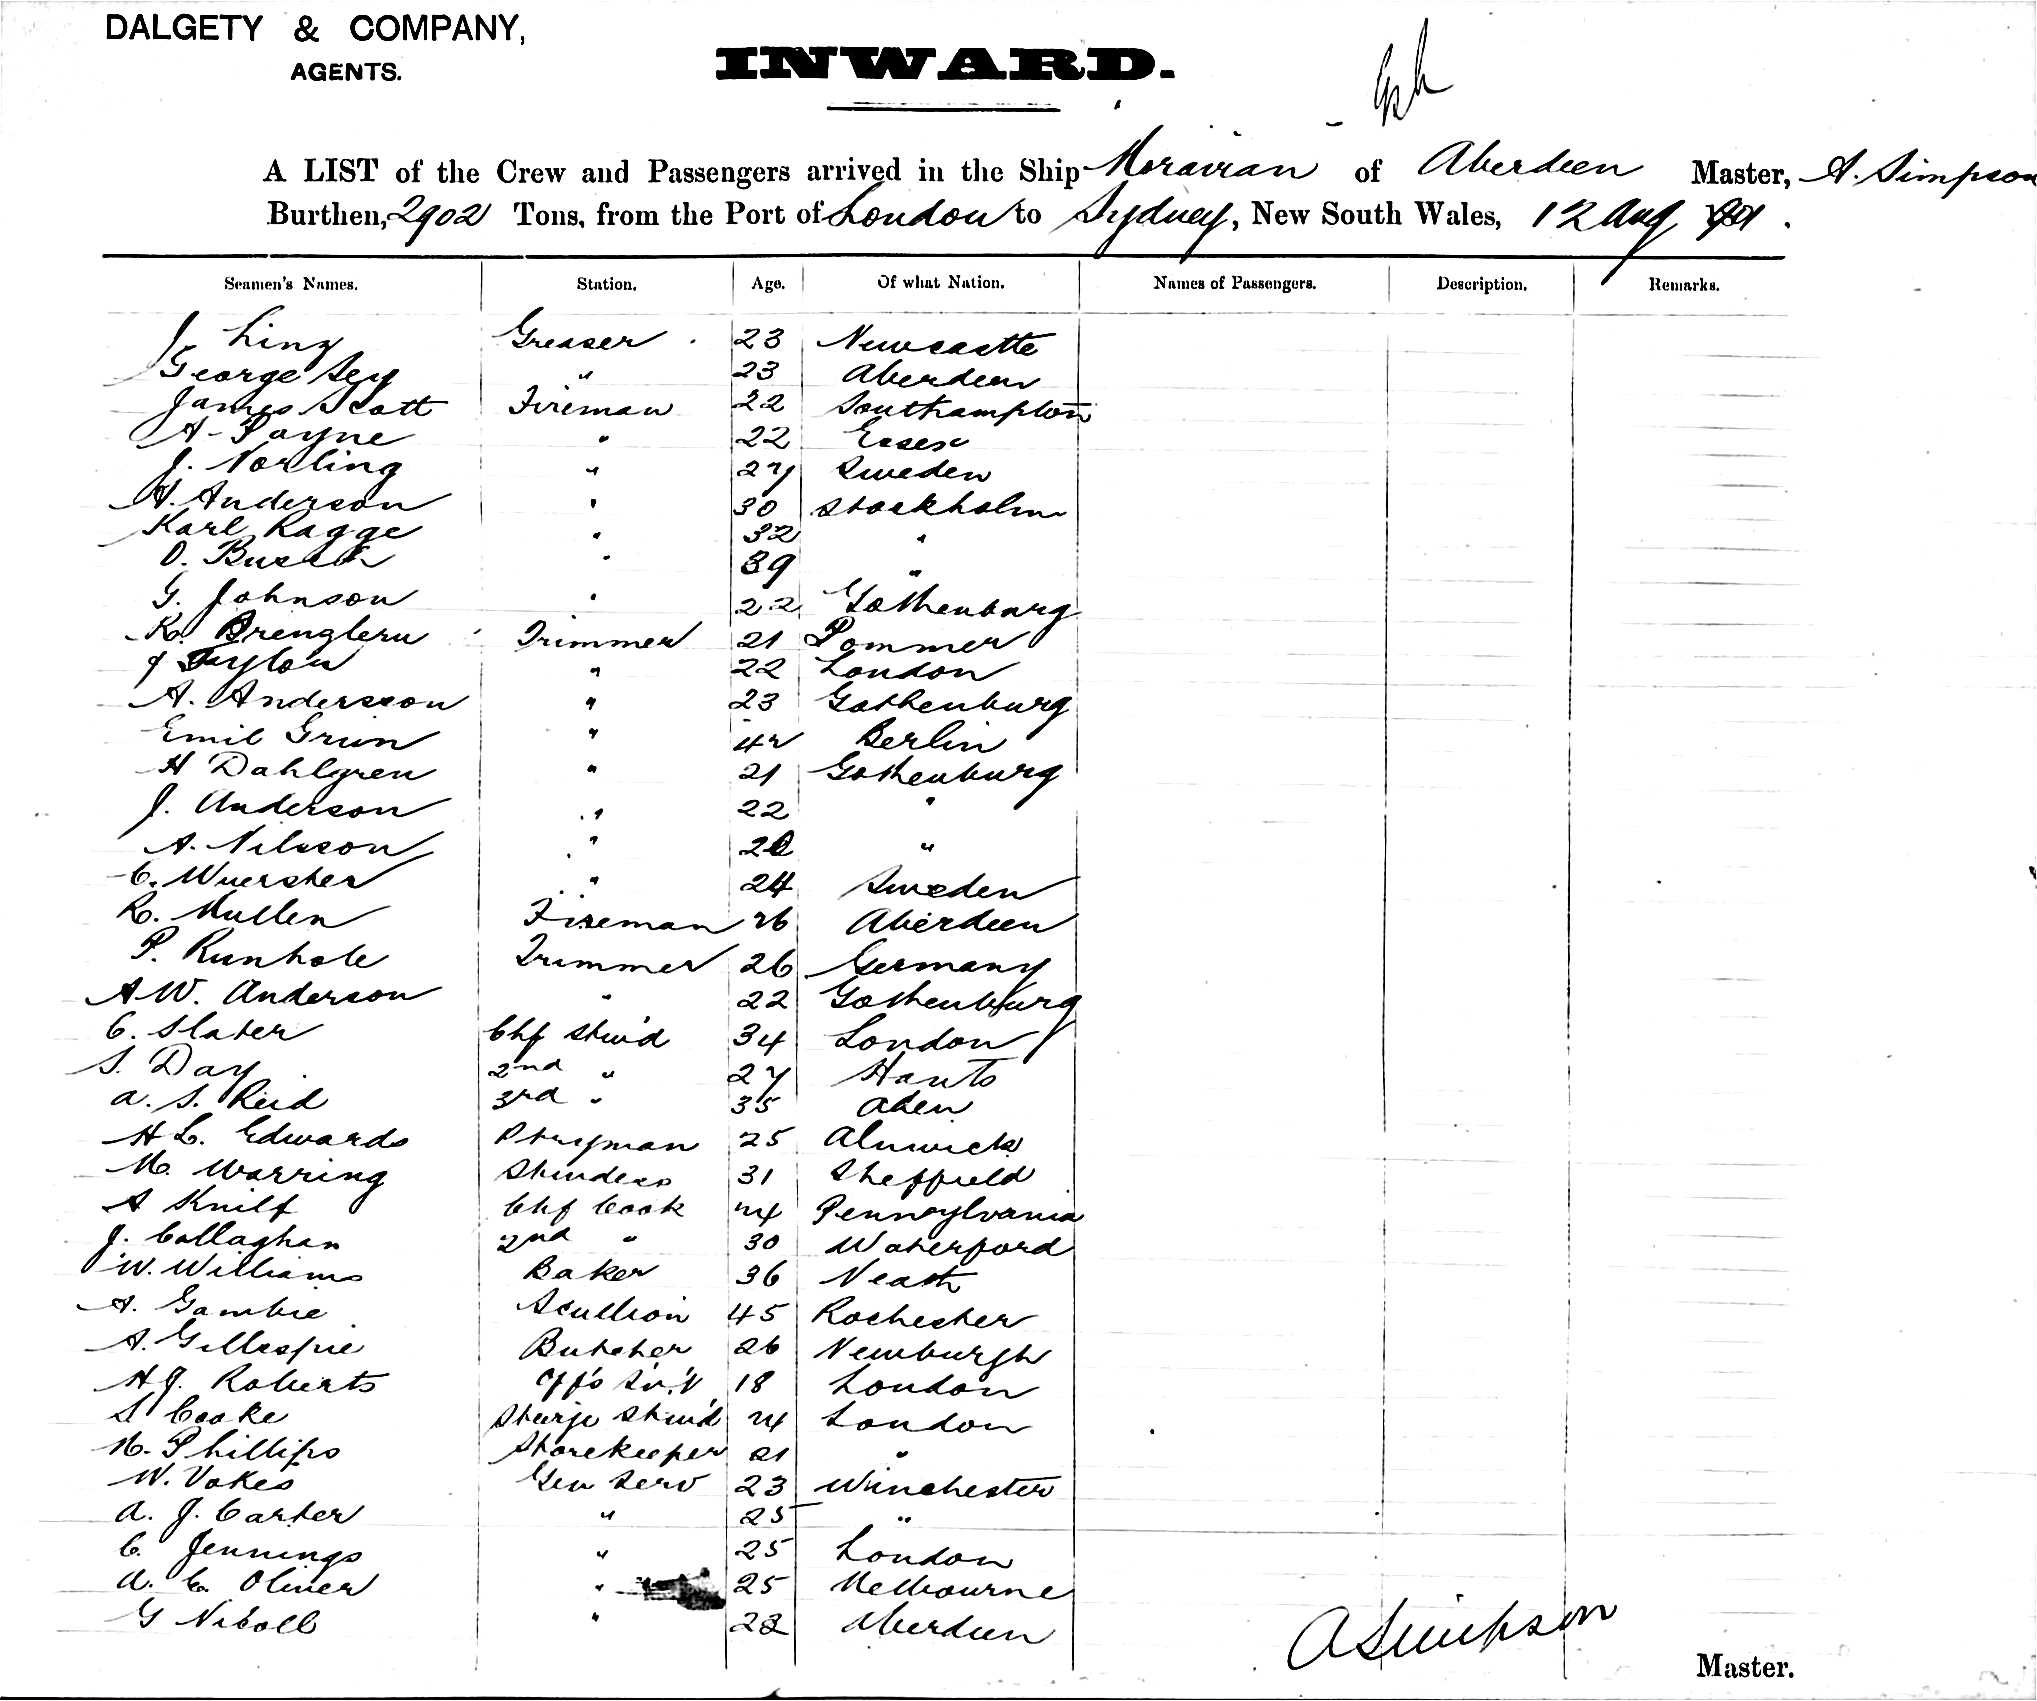 DALGETY & COMPANY,
AGENTS.
INWARD.
A LIST of the Crew and Passengers arrived in the Ship Moravian of Aberdeen Master, A. Simpson
Burthen, 2902 Tons, from the Port of London to Sydney, New South Wales, 12 Aug 1901.
Seamen's Names. Station. Age. Of what Nation. Names of Passengers. Description. Remarks.
J Ling Greaser 23 Newcastle
George Sey " 23 Aberdeen
James Scott Fireman 22 Southampton
A. Payne " 22 Essex
J. Norling " 27 Sweden
A. Anderson " 30 Stockholm
Karl Ragge " 32 "
O. Busch " 39 "
G. Johnson " 22 Gothenburg
Trimmer 21 Pommer
J Taylor " 22 London
A. Andersson " 23 Gothenburg
Emil Grun " 42 Berlin
H Dahlgren " 21 Gothenburg
J. Anderson " 22 "
A. Nilsson " 20 "
C. Wuerster " 24 Sweden
R. Mullen Fireman 26 Aberdeen
P. Runhole Trimmer 26 Germany
A W. Anderson " 22 Gothenburg
C. Slater Chf Stwd 34 London
S. Day 2nd " 27 Hants
A. S. Reid 3rd " 35 Aden
H L. Edwards Ptryman 25 Alnwick
M. Warring Stwdess 31 Sheffield
A Knilf Chf Cook 24 Pennsylvania
J. Callaghan 2nd " 30 Waterford
W. Williams Baker 36 Neath
A. Gambie Scullion 45 Rochester
A. Gillespie Butcher 26 Newburgh
H J. Roberts Off's Sv't 18 London
S Cooke Steerge Stwd 24 London
M. Phillips Storekeeper 21 "
W. Vokes Gen Serv 23 Winchester
A. J. Carter " 25 "
C. Jennings " 25 London
A. C. Oliver " 25 Melbourne
G Nicoll " 22 Aberdeen
A Simpson
Master.